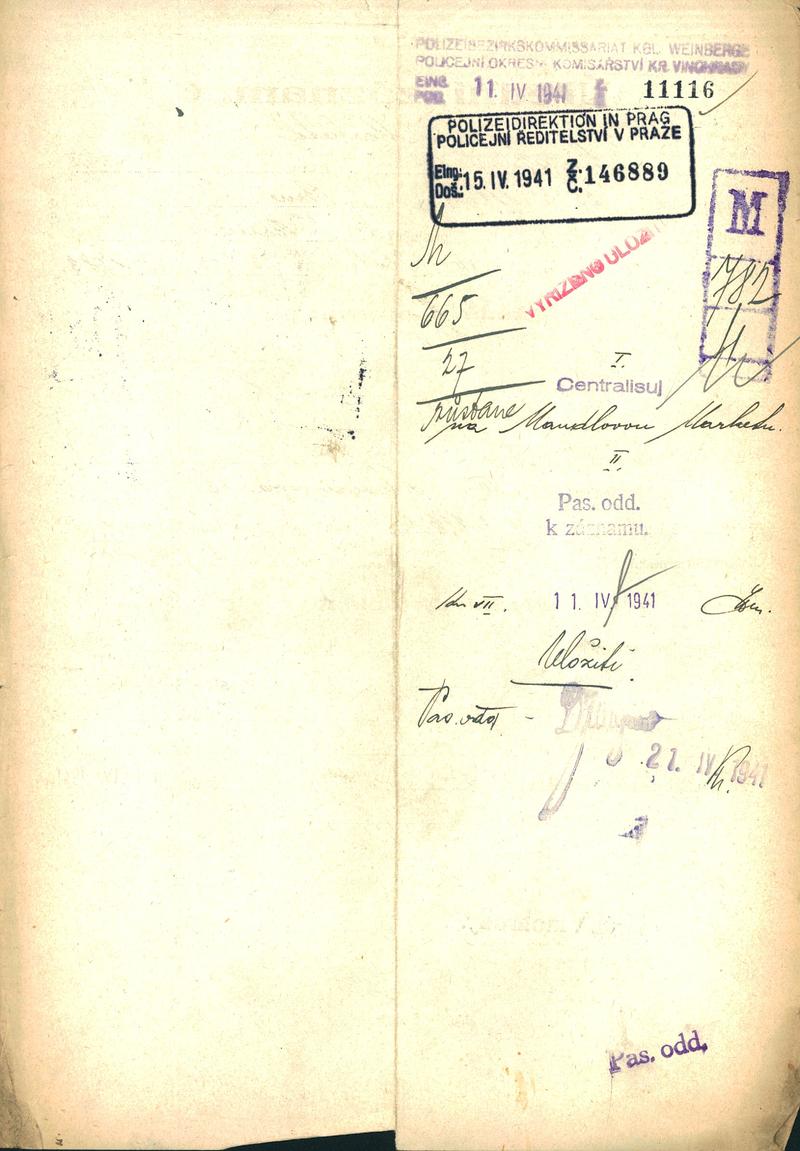 POLIZEIBEZIRKSKOMMISSARIAT KGL. WEINBERGE
POLICEJNÍ OKRESNÍ KOMISAŘSTVÍ KR. VINOHRADY
EING.
POD. 11. IV 1941 11116
POLIZEIDIREKTION IN PRAG
POLICEJNÍ ŘEDITELSTVÍ V PRAZE
Eing.:
Doš.: 15. IV. 1941 Z.
Č. 146889
M
VYŘÍZENO ULOŽIT
782
665
27
I.
Centralisuj
na Mandlovou Marketu.
II.
Pas. odd.
k záznamu.
VII. 11. IV. 1941
Uložiti.
Pas. odd. -
21. IV 1941
Pas. odd.